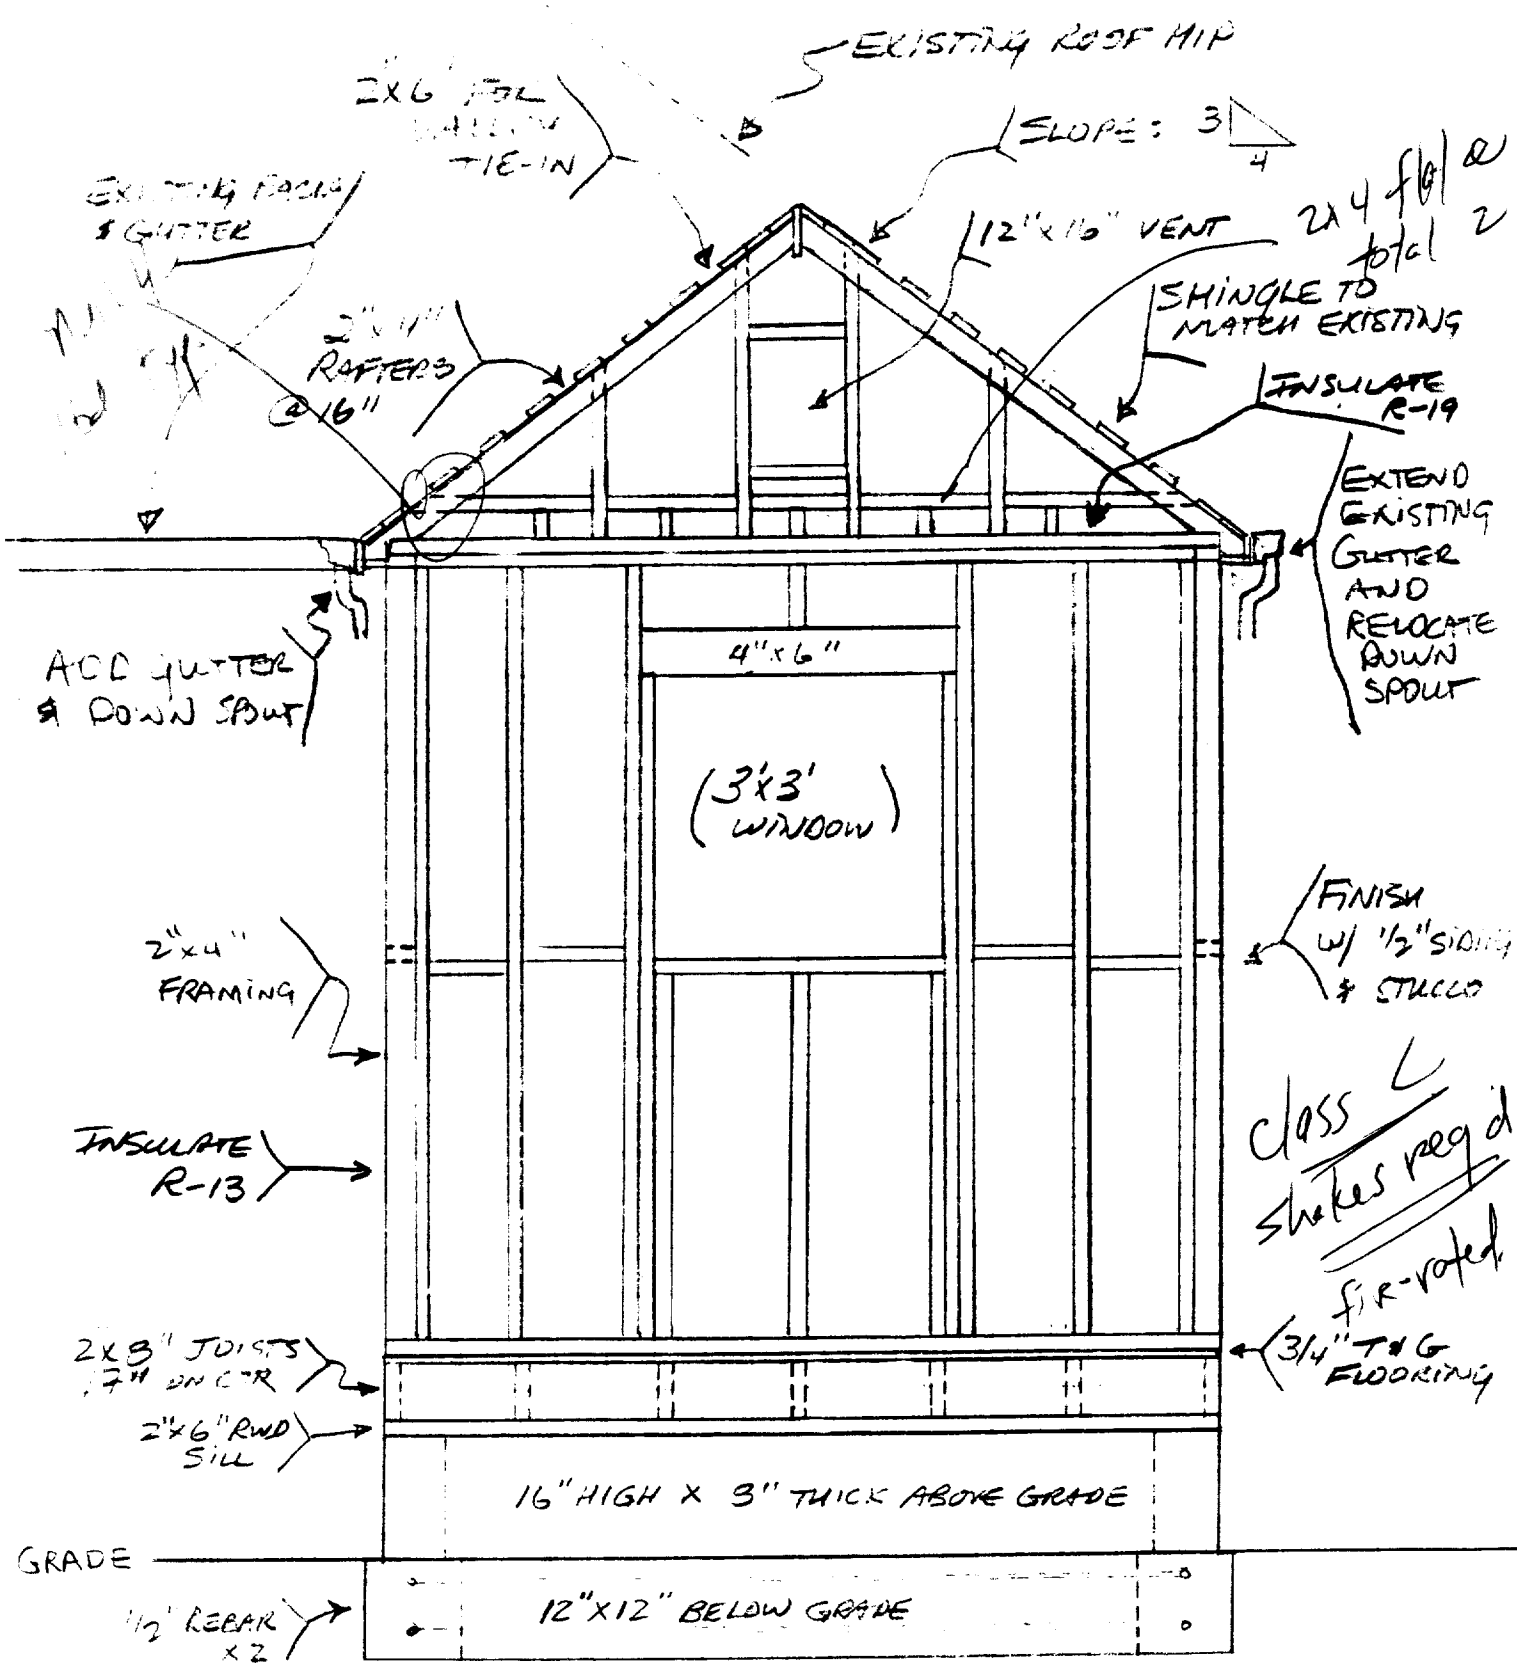 EXISTING ROOF HIP
2"x6" FOR
VALLEY
TIE-IN
SLOPE: 3
4
EXISTING FACIA
& GUTTER
12"x16" VENT
2x4
total 2
SHINGLE TO
MATCH EXISTING
2"x4"
RAFTERS
@ 16"
INSULATE
R-19
EXTEND
EXISTING
GUTTER
AND
RELOCATE
DOWN
SPOUT
ADD GUTTER
& DOWN SPOUT
4"x6"
(3'x3'
WINDOW)
2"x4"
FRAMING
FINISH
W/ 1/2" SIDING
& STUCCO
INSULATE
R-13
class C
shakes req'd
fire-rated
2x8" JOISTS
ON CTR
3/4" T&G
FLOORING
2"x6" RWD
SILL
16" HIGH X 8" THICK ABOVE GRADE
GRADE
1/2" REBAR
x2
12"X12" BELOW GRADE